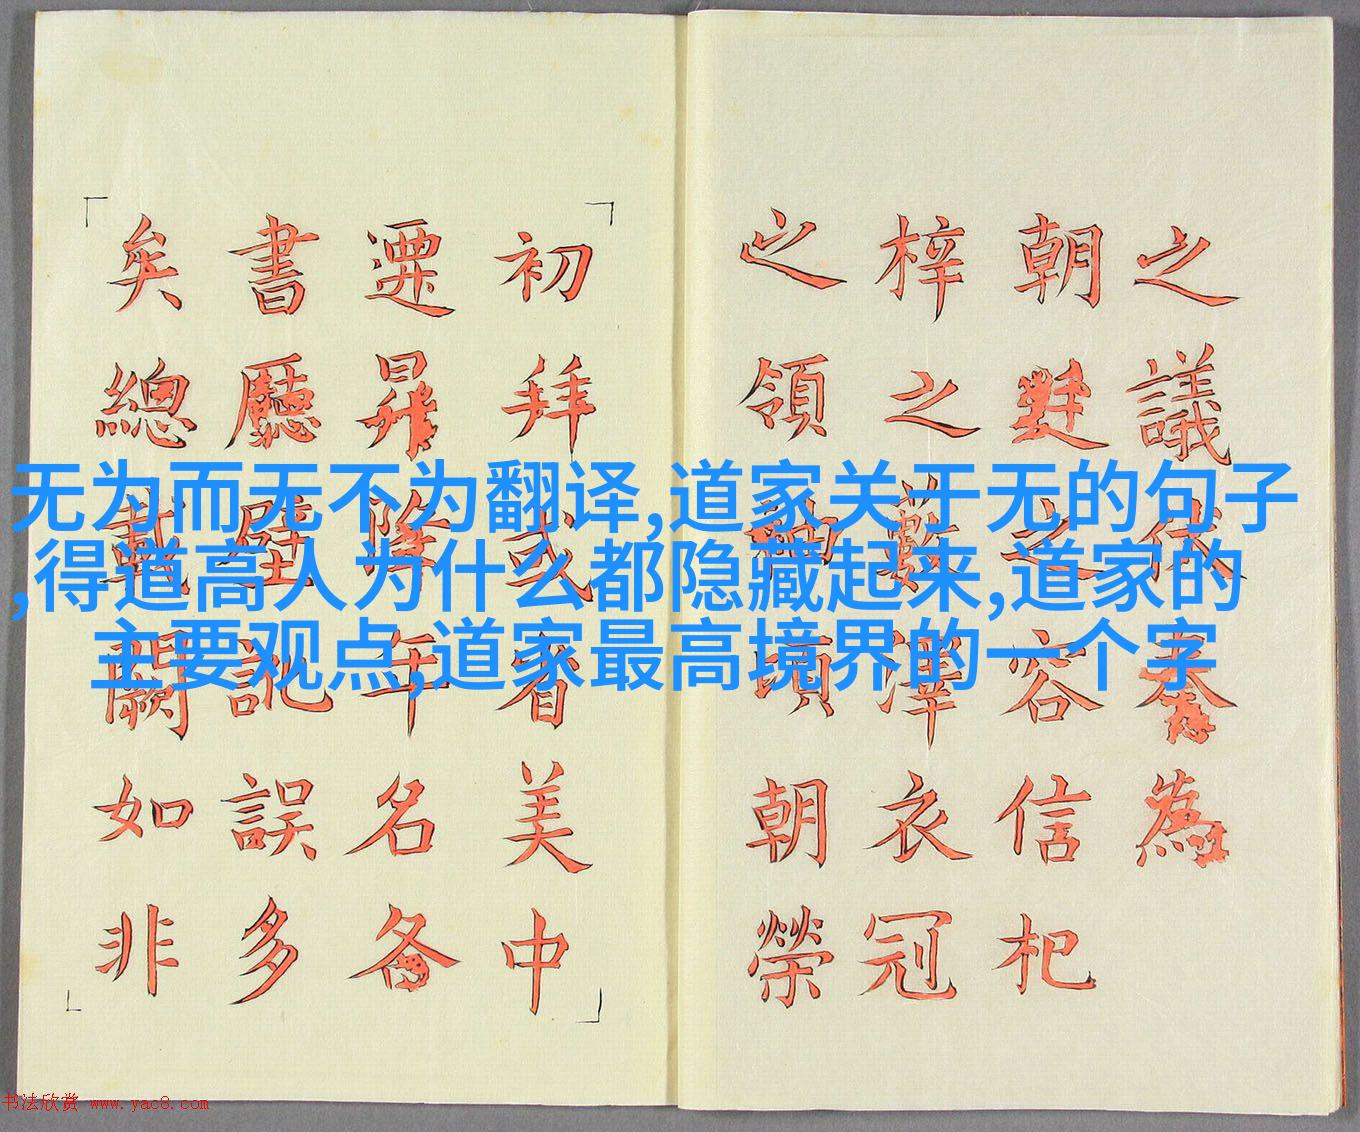 无为而无不为翻译,道家关于无的句子
,得道高人为什么都隐藏起来,道家的
主要观点,道家最高境界的一个字
之議為
朝之容信杞
梓之澤衣冠
之領袖頃朝榮
初拜或省美中
遷昇降年名各
書廳壁訛誤多
矣總載闕如非
书法欣赏 www.yac8.com